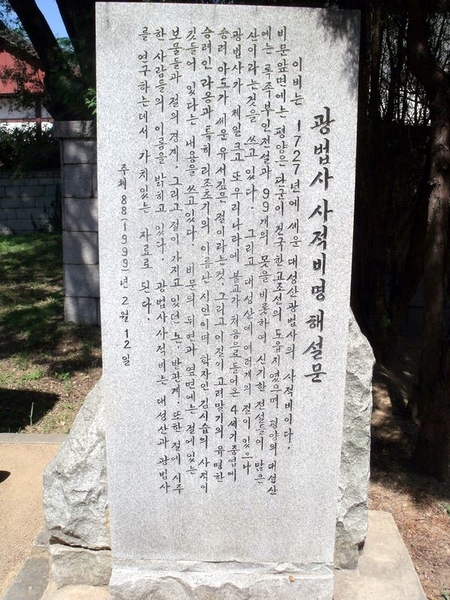 광법사 사적비명 해설문
이 비는 1727년에 세운 대성산광법사의 사적비이다.
비문앞면에는 평양은 단군이 건국한 고조선의 도읍지였으며 평양의 대성산
에는 록족부인전설과 99개의 못을 비롯하여 신기한 전설들이 많은
산이라는것을 쓰고있다. 그리고 대성산에 여러개의 절이 있으나
광법사가 제일 크고 또 우리 나라에 불교가 처음으로 들어온 4세기중엽에
승려 아도가 세운 유서깊은 절이라는것, 그리고 이 절이 고려말기의 유명한
승려인 라옹과 특히 리조초기의 이름난 시인이며 학자인 김시습의 사적이
깃들어 있다는 내용을 쓰고있다. 비문의 뒤면과 옆면에는 절에 있는
보물들과 절의 경계, 그리고 절이 가지고 있던 논, 밭관계, 또한 절에 시주
한 사람들의 이름을 밝히고 있다. 광법사사적비는 대성산과 광법사
를 연구하는데서 가치있는 자료로 된다.
주체88(1999)년 2월 12일